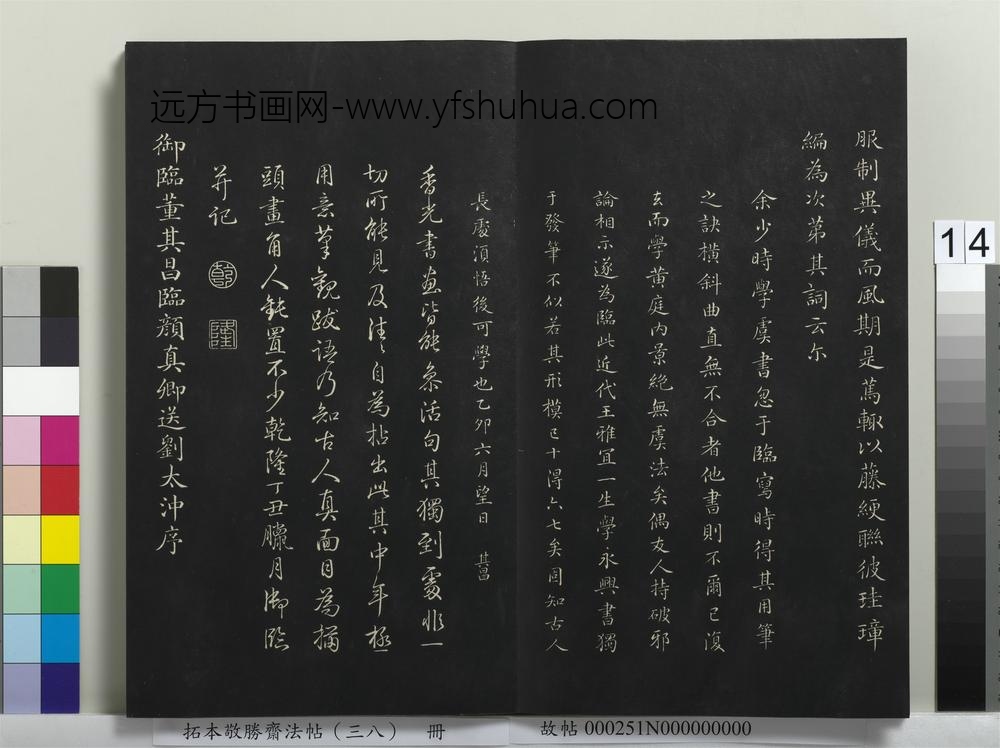 远方书画网-www.yfshuhua.com
服制異儀而風期是篤輙以藤綆聯彼珪璋
編為次第其詞云尔
余少時學虞書忽于臨寫時得其用筆
之訣橫斜曲直無不合者他書則不爾已復
去而學黄庭内景絶無虞法矣偶友人持破邪
論相示遂為臨此近代王雅宜一生學永興書獨
于發筆不似若其形模已十得六七矣固知古人
長處須悟後可學也乙卯六月望日 其昌
香光書畫皆能參活句其獨到處非一
切所能見及法自為拈出此其中年極
用意筆觀跋語乃知古人真面目為描
頭畫角人鈍置不少乾隆丁丑臘月御臨
并記
乾
隆
御臨董其昌臨顔真卿送劉太沖序
14
拓本敬勝齋法帖（三八） 冊
故帖 000251N000000000